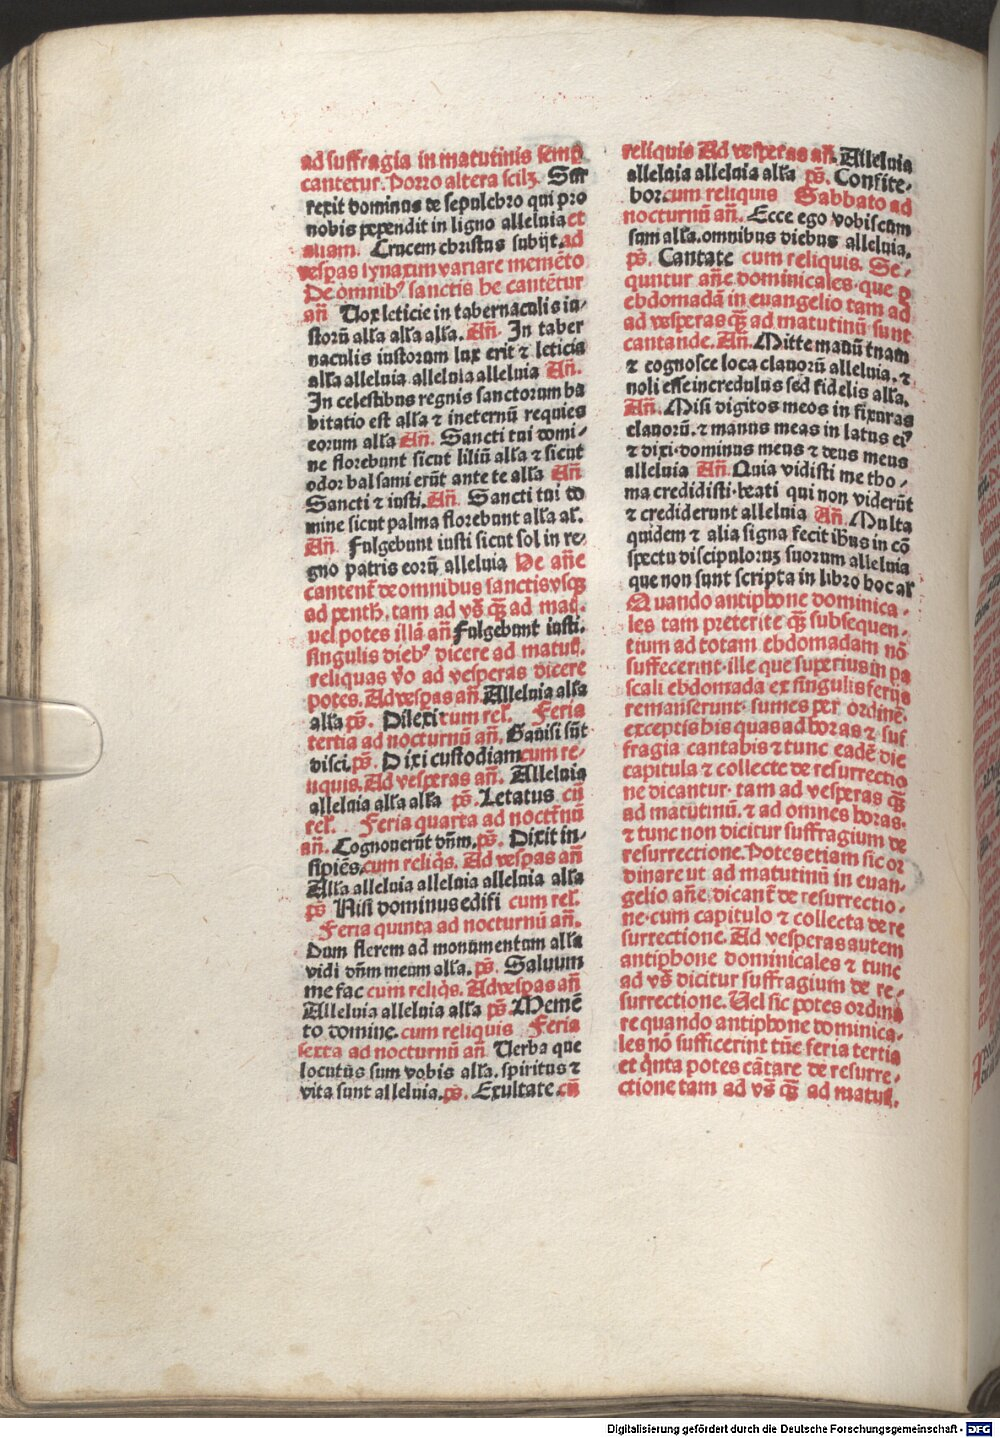 ad suffragia in matutinis semꝑ
cantetur. Porro altera scilꝫ. Sur
rexit dominus de sepulchro qui pro
nobis pependit in ligno alleluia et
aliam. Crucem christus subijt. ad
vesꝑas synaxim variare memẽto
De omnibꝰ sanctis he cantẽtur
añ Vox leticie in tabernaculis iu-
storũ alła alła alła. Añ. In taber
naculis iustorum lux erit ⁊ leticia
alła alleluia alleluia alleluia Añ.
In celestibus regnis sanctorum ha
bitatio est alła ⁊ ineternũ requies
eorum alła Añ. Sancti tui domi-
ne florebunt sicut liliũ alła ⁊ sicut
odor balsami erũt ante te alła Añ
Sancti ⁊ iusti. Añ. Sancti tui do
mine sicut palma florebunt alła al̄.
Añ. Fulgebunt iusti sicut sol in re-
gno patris eorũ alleluia De añe
cantent̃ de omnibus sanctis vsqꝫ
ad penth. tam ad vs̃ qꝫ̃ ad maṫ.
uel potes illã añ Fulgebunt iusti.
singulis diebꝰ dicere ad matuṫ.
reliquas vo ad vesperas dicere
potes. Ad vesꝑas añ. Alleluia alła
alła ps̃. Dilexi cum rel̃. Feria
tertia ad nocturnũ añ. Gauisi sũt
disci. ps̃. Dixi custodiam cum re-
liquis. Ad vesperas añ. Alleluia
alleluia alła alła ps̃. Letatus cũ
rel̃. Feria quarta ad nocttnũ
añ. Cognouerũt dñm. ps̃. Dixit in-
sipiẽs. cum reliq̃s. Ad vesꝑas añ
Alła alleluia alleluia alleluia alła
ps̃ Nisi dominus edifi cum rel̃.
Feria quinta ad nocturnũ añ.
Dum flerem ad monumentum alła
vidi dñm meum alła. ps̃. Saluum
me fac cum reliq̃s. Ad vesꝑas añ
Alleluia alleluia alła ps̃. Memẽ
to domine. cum reliquis Feria
sexta ad nocturnũ añ Verba que
locutus sum vobis alła. spiritus ⁊
vita sunt alleluia. ps̃. Exultate. cũ
reliquis Ad vesperas añ. Alleluia
alleluia alleluia alła ps̃. Confite-
bor. cum reliquis Sabbato ad
nocturnũ añ. Ecce ego vobiscum
sum alła. omnibus diebus alleluia.
ps̃. Cantate cum reliquis. Se-
quntur añe dominicales. que ꝑ
ebdomadã in euangelio tam ad
ad vesperas qꝫ̃ ad matutinũ sunt
cantande. Añ. Mitte manũ tuam
⁊ cognosce loca clauorũ alleluia. ⁊
noli esse incredulus sed fidelis alła.
Añ. Misi digitos meos in fixuras
clauorũ. ⁊ manus meas in latus eiꝰ
⁊ dixi. dominus meus ⁊ deus meus
alleluia Añ. Quia vidisti me tho-
ma credidisti. beati qui non viderũt
⁊ crediderunt alleluia Añ. Multa
quidem ⁊ alia signa fecit ihus in cõ
spectu discipulorum suorum alleluia
que non sunt scripta in libro hoc al̃
Quando antiphone dominica-
les tam preterite qꝫ̃ subsequen-
tium ad totam ebdomadam nõ
suffecerint. ille que superius in pa
scali ebdomada ex singulis ferijs
remanserunt. sumes per ordinẽ.
exceptis his quas ad horas ⁊ suf
fragia cantabis ⁊ tunc eadẽ die
capitula ⁊ collecte de resurrectio
ne dicantur. tam ad vesperas qꝫ̃
ad matutinũ. ⁊ ad omnes horas.
⁊ tunc non dicitur suffragium de
resurrectione. Potes etiam sic or
dinare ut ad matutinũ in euan-
gelio añe. dicant̃ de resurrectio-
ne. cum capitulo ⁊ collecta de re
surrectione. Ad vesperas autem
antiphone dominicales ⁊ tunc
ad vs̃ dicitur suffragium de re-
surrectione. Uel sic potes ordina
re quando antiphone dominica-
les nõ suffecerint tũc feria tertia
et q̃nta potes cãtare de resurre-
ctione tam ad vs̃ qꝫ̃ ad matuṫ.
Digitalisierung gefördert durch die Deutsche Forschungsgemeinschaft - DFG